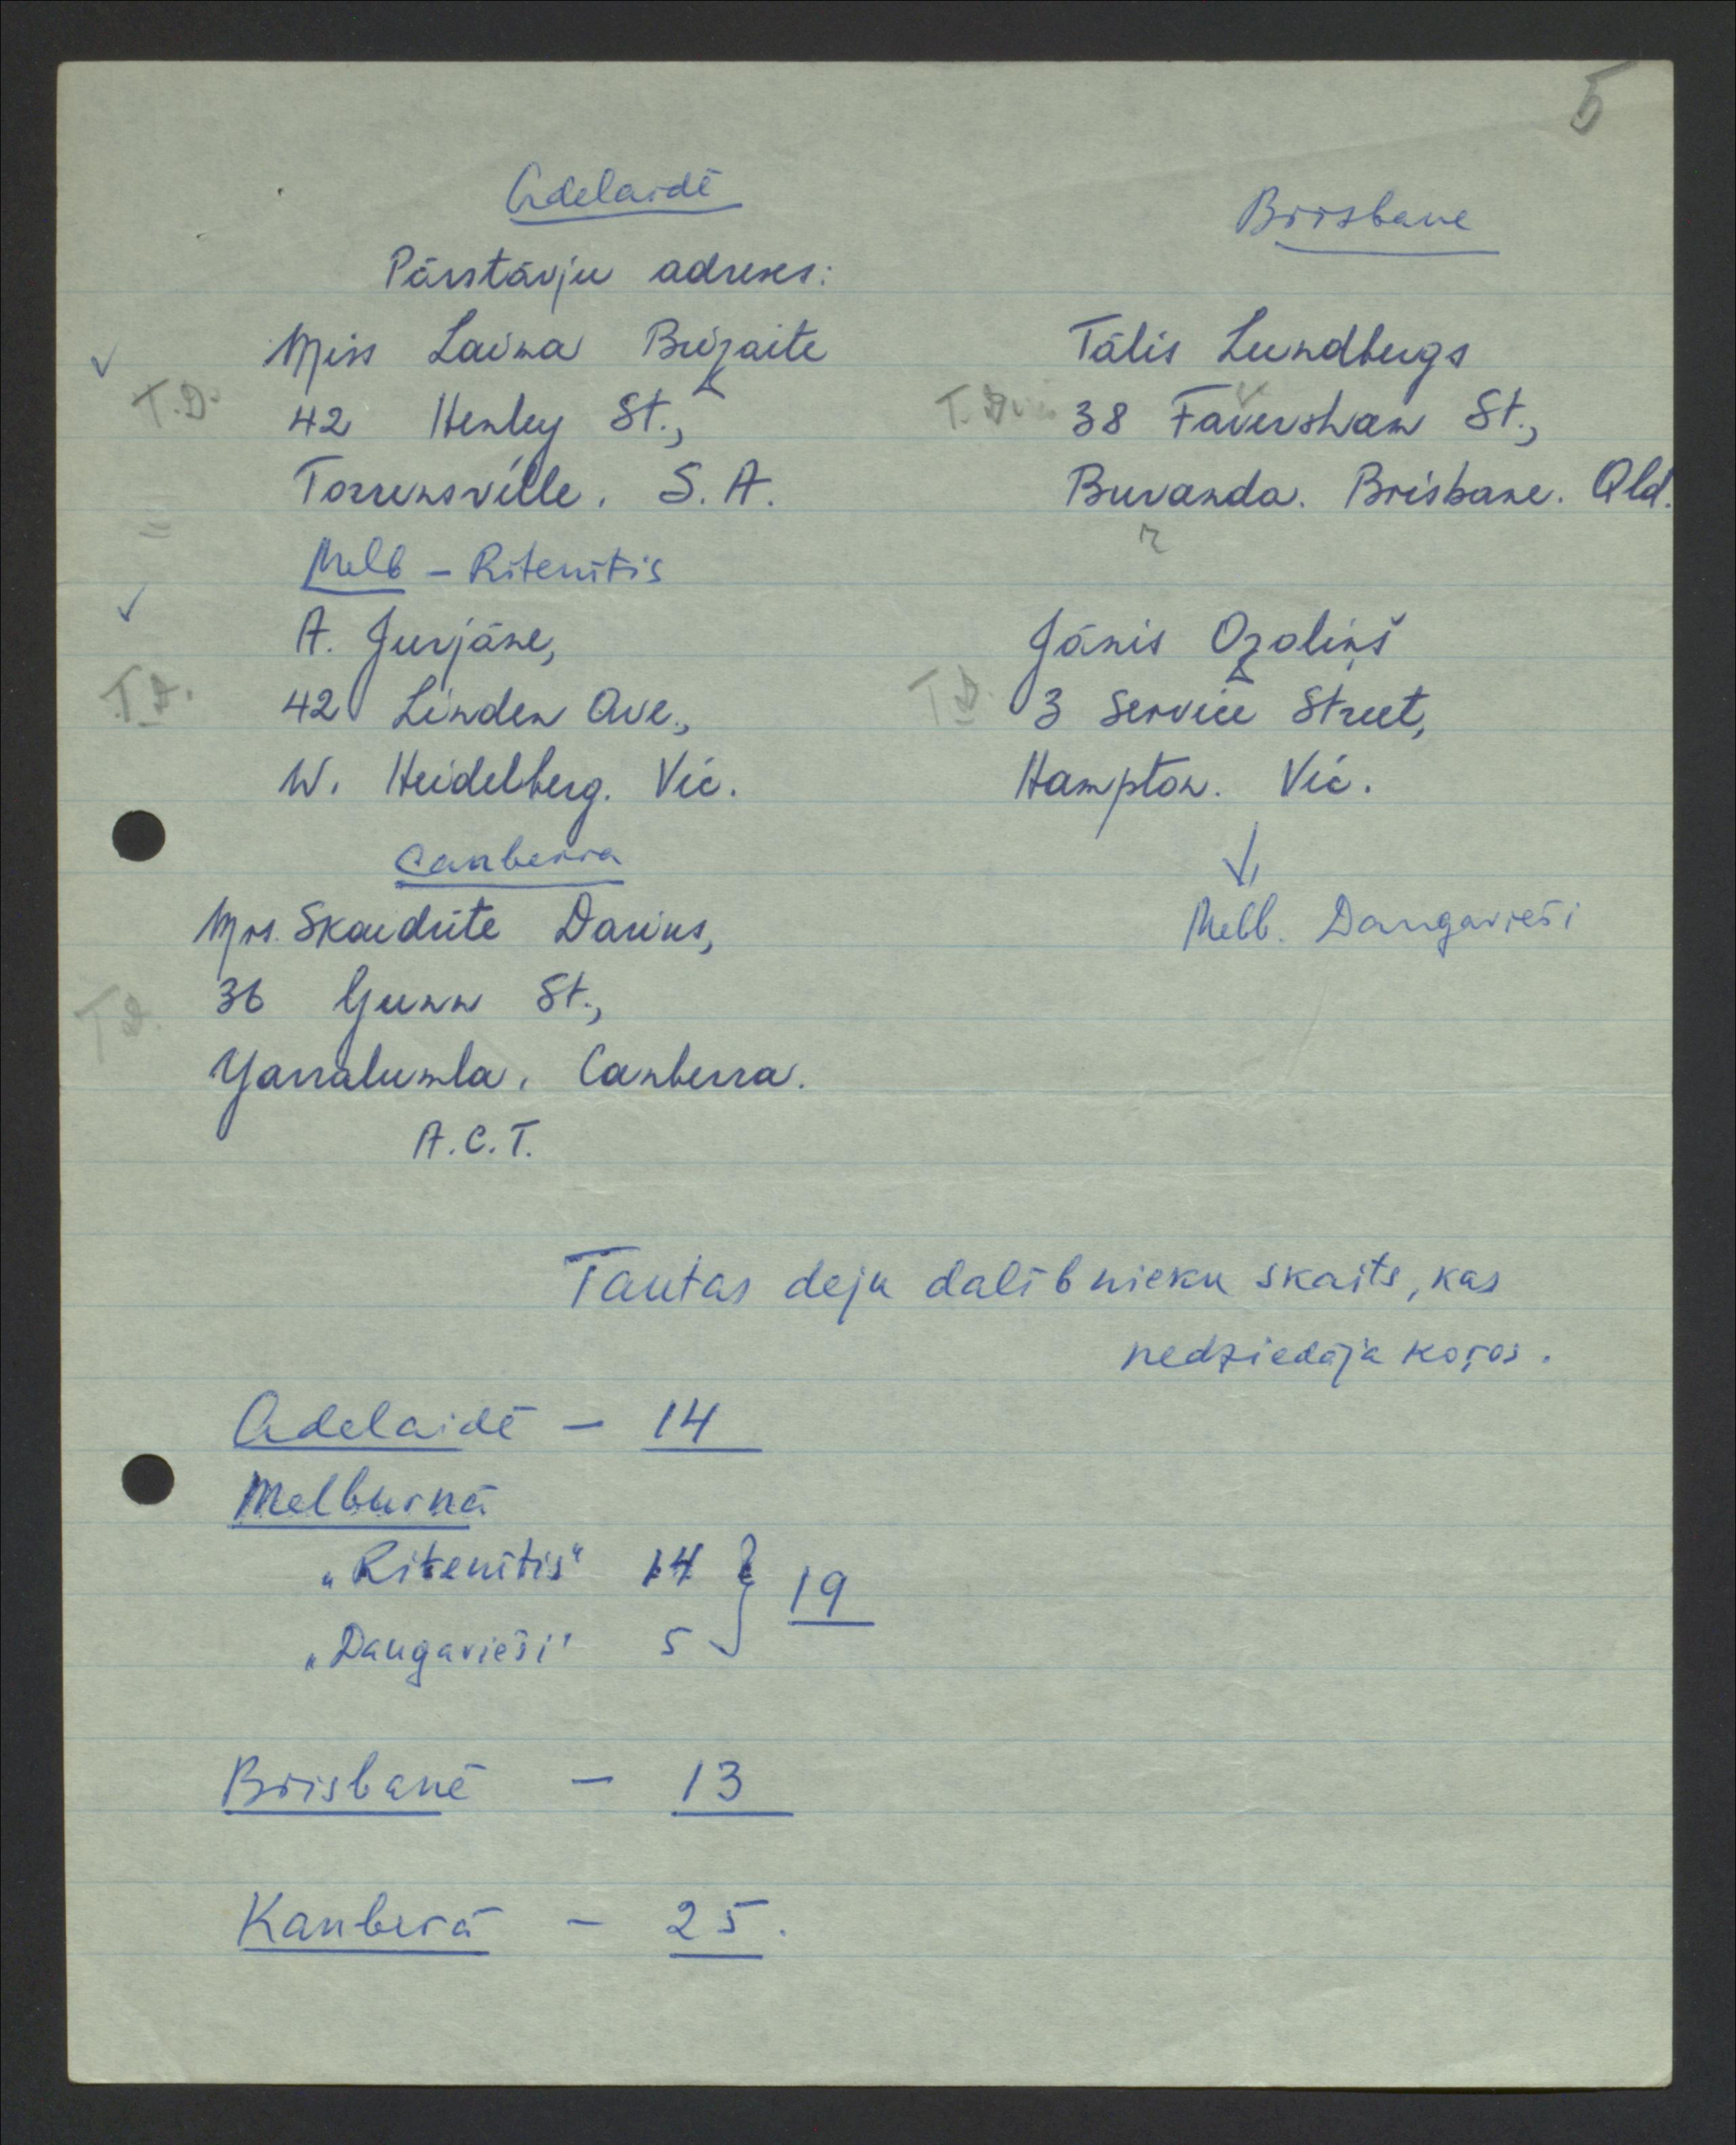 5
Adelaidē
Pārstāvju adreses:
Miss Laima Brizaite
T.D.
42 Henley St.,
Torrensville. S. A.
Melb - Ritenītis
A. Jurjāne,
T.D.
42 Linden Ave.,
W. Heidelberg. Vic.
Canberra
Mrs. Skaidrite Darius,
T.D.
36 Gunn St.,
Yarralumla. Canberra.
A.C.T.
Brisbane
Tālis Lundbergs
T.D.
38 Faversham St.,
Buranda. Brisbane. Qld.
r
Jānis Ozoliņš
T.D.
3 Service Street,
Hampton. Vic.
Melb. Daugavieši
Tautas deju dalībnieku skaits, kas
nedziedāja koŗos.
Adelaidē - 14
Melburnā
„Ritenītis" 14 } 19
„Daugavieši" 5
Brisbanē - 13
Kanberā - 25.